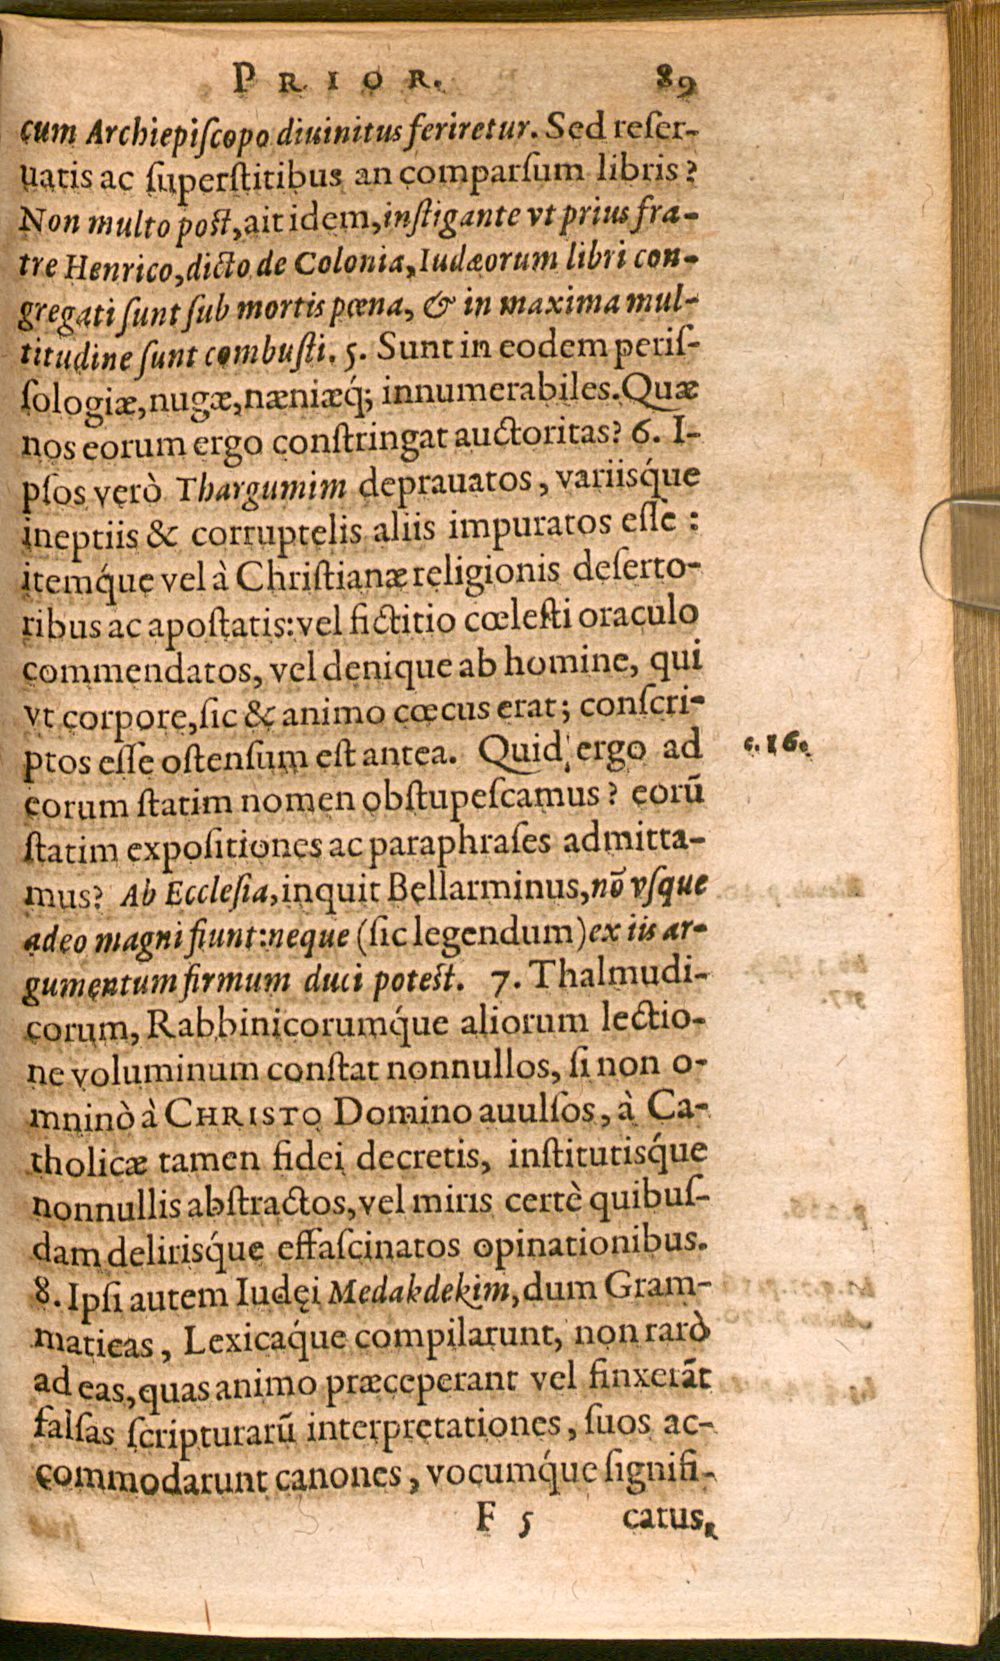 PRIOR. 89
cum Archiepiſcopo diuinitus feriretur. Sed reſer-
uatis ac ſuperstitibus an comparſum libris?
Non multo post, ait idem, instigante vt prius fra-
tre Henrico, dicto de Colonia, Iudæorum libri con-
gregati ſunt ſub mortis pœna, & in maxima mul-
titudine ſunt combusti. 5. Sunt in eodem periſ-
ſologiæ, nugæ, næniæq́; innumerabiles. Quæ
nos eorum ergo constringat auctoritas? 6. I-
pſos verò Thargumim deprauatos, variisq́ue
ineptiis & corruptelis aliis impuratos eſſe:
itemq́ue vel à Christianæ religionis deſerto-
ribus ac apostatis: vel fictitio cœlesti oraculo
commendatos, vel denique ab homine, qui
vt corpore, ſic & animo cœcus erat; conſcri-
ptos eſſe ostenſum est antea. Quid ergo ad
c. 16.
eorum statim nomen obstupeſcamus? eorū
statim expoſitiones ac paraphraſes admitta-
mus? Ab Eccleſia, inquit Bellarminus, nō vſque
adeo magni fiunt: neque (ſic legendum) ex iis ar-
gumentum firmum duci potest. 7. Thalmudi-
corum, Rabbinicorumq́ue aliorum lectio-
ne voluminum constat nonnullos, ſi non o-
mninò à CHRISTO Domino auulſos, à Ca-
tholicæ tamen fidei decretis, institutisq́ue
nonnullis abstractos, vel miris certè quibuſ-
dam delirisq́ue effaſcinatos opinationibus.
8. Ipſi autem Iudęi Medakdekim, dum Gram-
maticas, Lexicaq́ue compilarunt, non rarò
ad eas, quas animo præceperant vel finxerāt
falſas ſcripturarū interpretationes, ſuos ac-
commodarunt canones, vocumq́ue ſignifi-
F 5 catus,